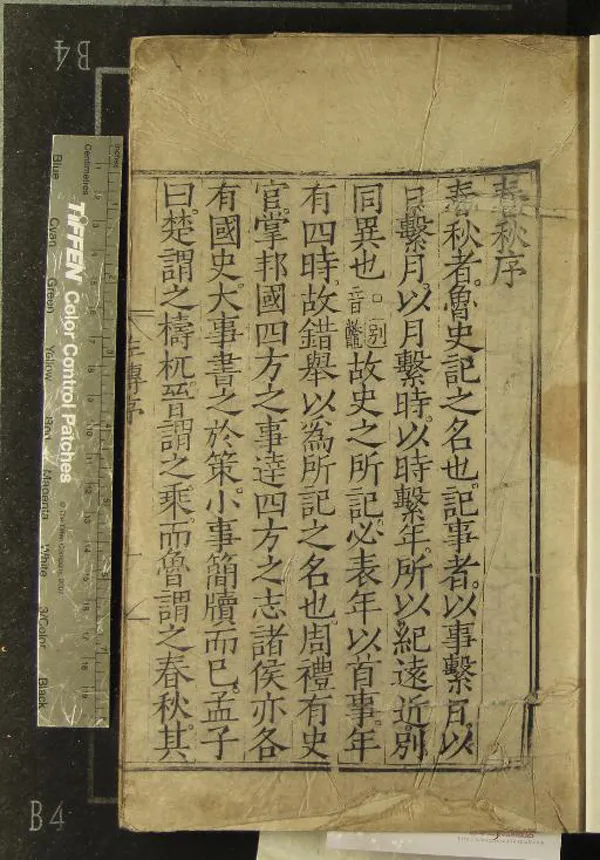 春秋序
春秋者。魯史記之名也。記事者。以事繫日。以
日繫月。以月繫時。以時繫年。所以紀遠近。別
同異也 別 音 故史之所記。必表年以首事。年
有四時。故錯舉以為所記之名也。周禮有史
官。掌邦國四方之事。達四方之志。諸侯亦各
有國史。大事書之於策。小事簡牘而已。孟子
曰。楚謂之檮杌。晉謂之乘。而魯謂之春秋。其
左傳序
B4
B4
Centimetres
Inches
TIFFEN Color Control Patches
Blue
Cyan
Green
Yellow
Red
Magenta
White
3/Color
Black